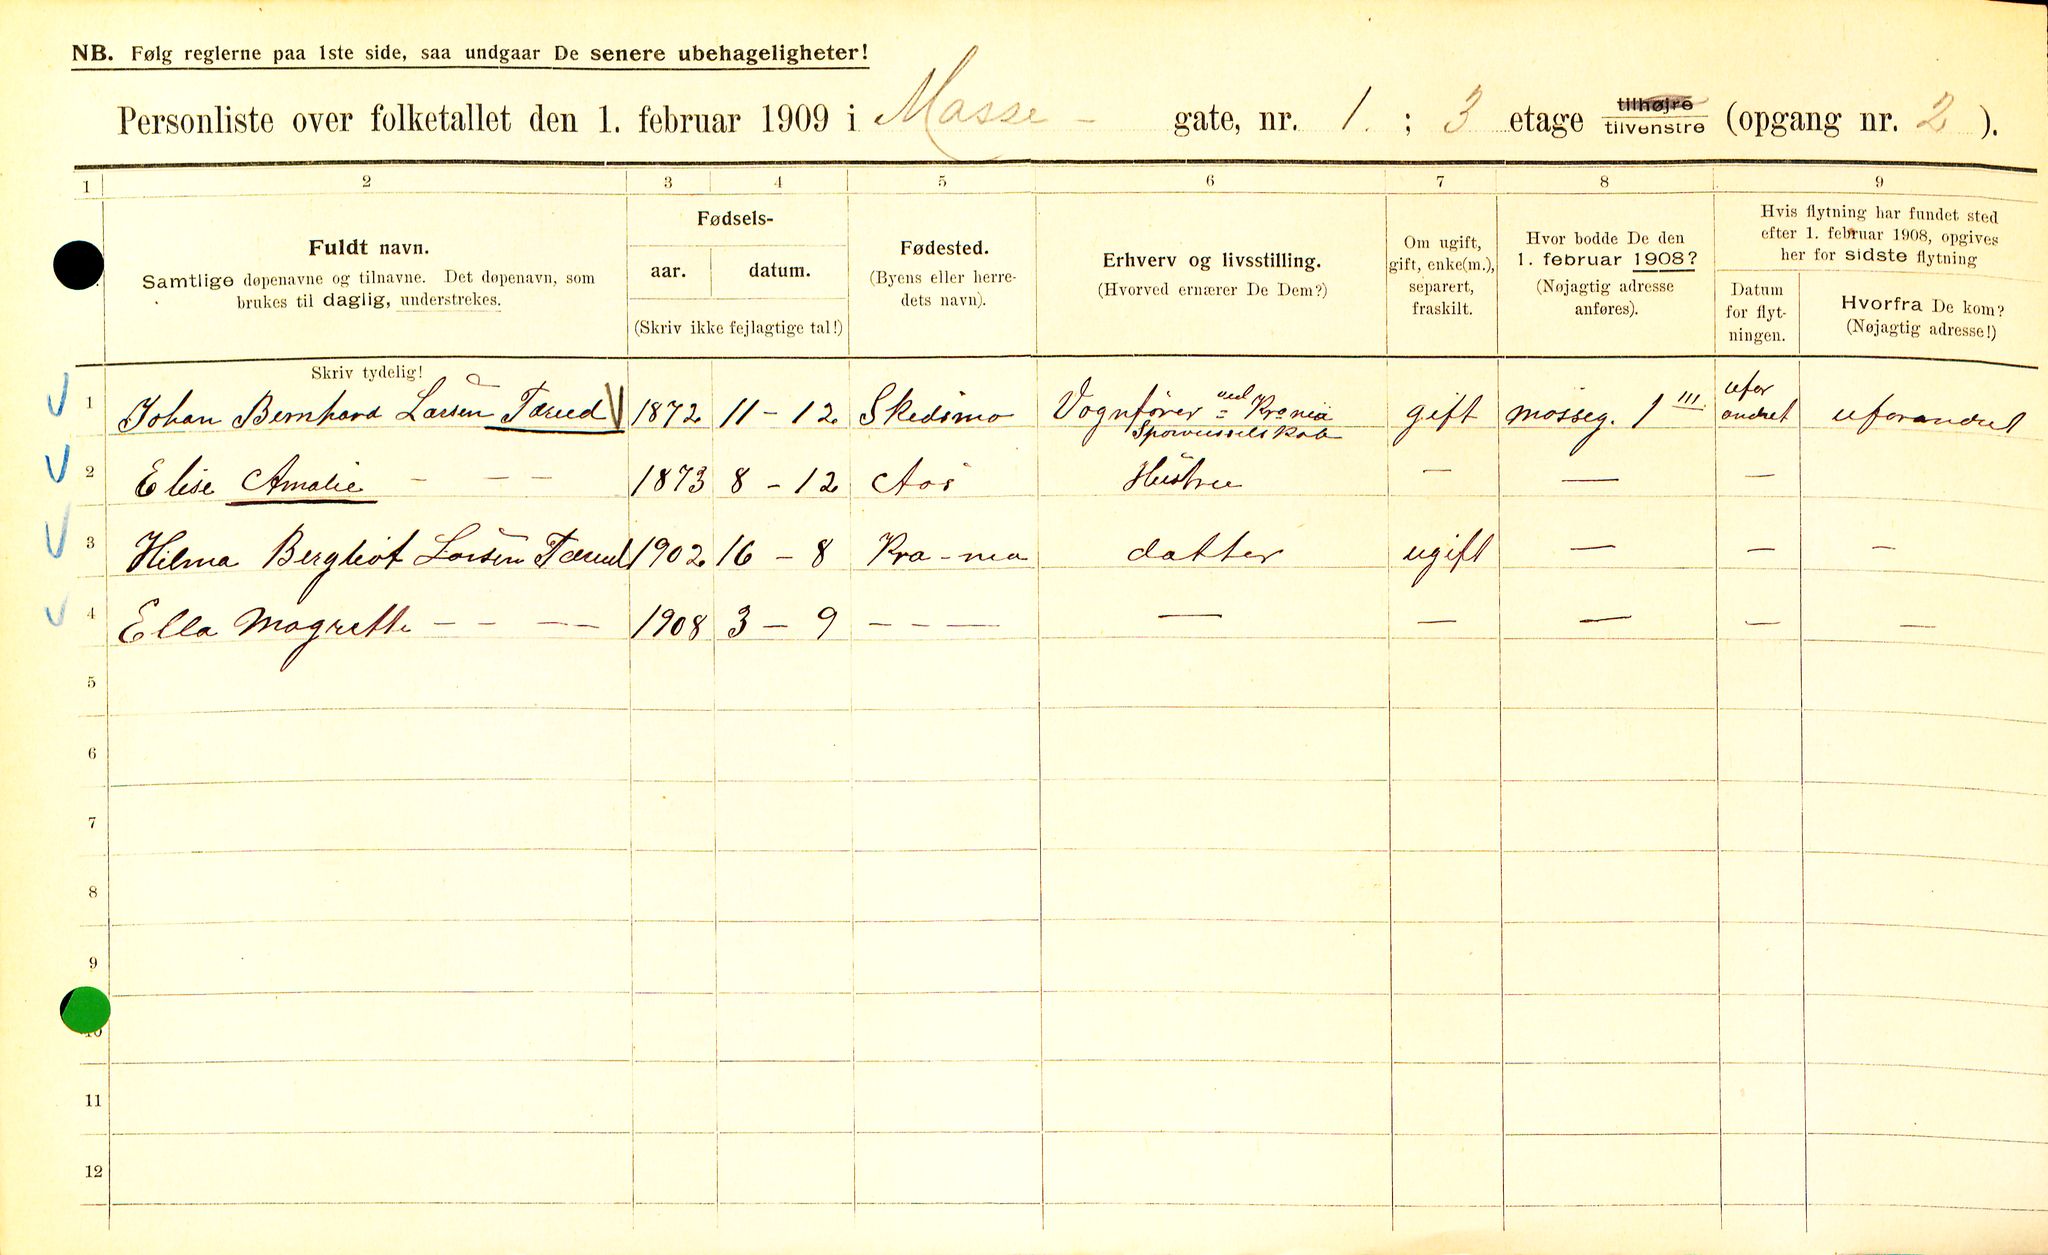 NB. Følg reglerne paa 1ste side, saa undgaar De senere ubehageligheter!
Personliste over folketallet den 1. februar 1909 i Mosse - gate, nr. 1. ; 3 etage tilhøjre tilvenstre (opgang nr. 2 ).
1 2 3 4 5 6 7 8 9
Fuldt navn.
Samtlige døpenavne og tilnavne. Det døpenavn, som
brukes til daglig, understrekes.
Skriv tydelig!
Fødsels-
aar. datum.
(Skriv ikke fejlagtige tal!)
Fødested.
(Byens eller herre-
dets navn).
Erhverv og livsstilling.
(Hvorved ernærer De Dem?)
Om ugift,
gift, enke(m.),
separert,
fraskilt.
Hvor bodde De den
1. februar 1908?
(Nøjagtig adresse
anføres).
Hvis flytning har fundet sted
efter 1. februar 1908, opgives
her for sidste flytning
Datum
for flyt-
ningen.
Hvorfra De kom?
(Nøjagtig adresse!)
1 Johan Bernhard Larsen Tærud 1872 11 - 12 Skedsmo Vognfører ved Kra nia Sporveisselskab gift mosseg. 1 III. ufor andret uforandret
2 Elise Amalie - - - 1873 8 - 12 Aas Hustru - - -
3 Hilma Bergliot Larsen Tærud 1902 16 - 8 Kra - nia datter ugift - - -
4 Ella Magrette - - - - 1908 3 - 9 - - - - - - - -
5
6
7
8
9
10
11
12